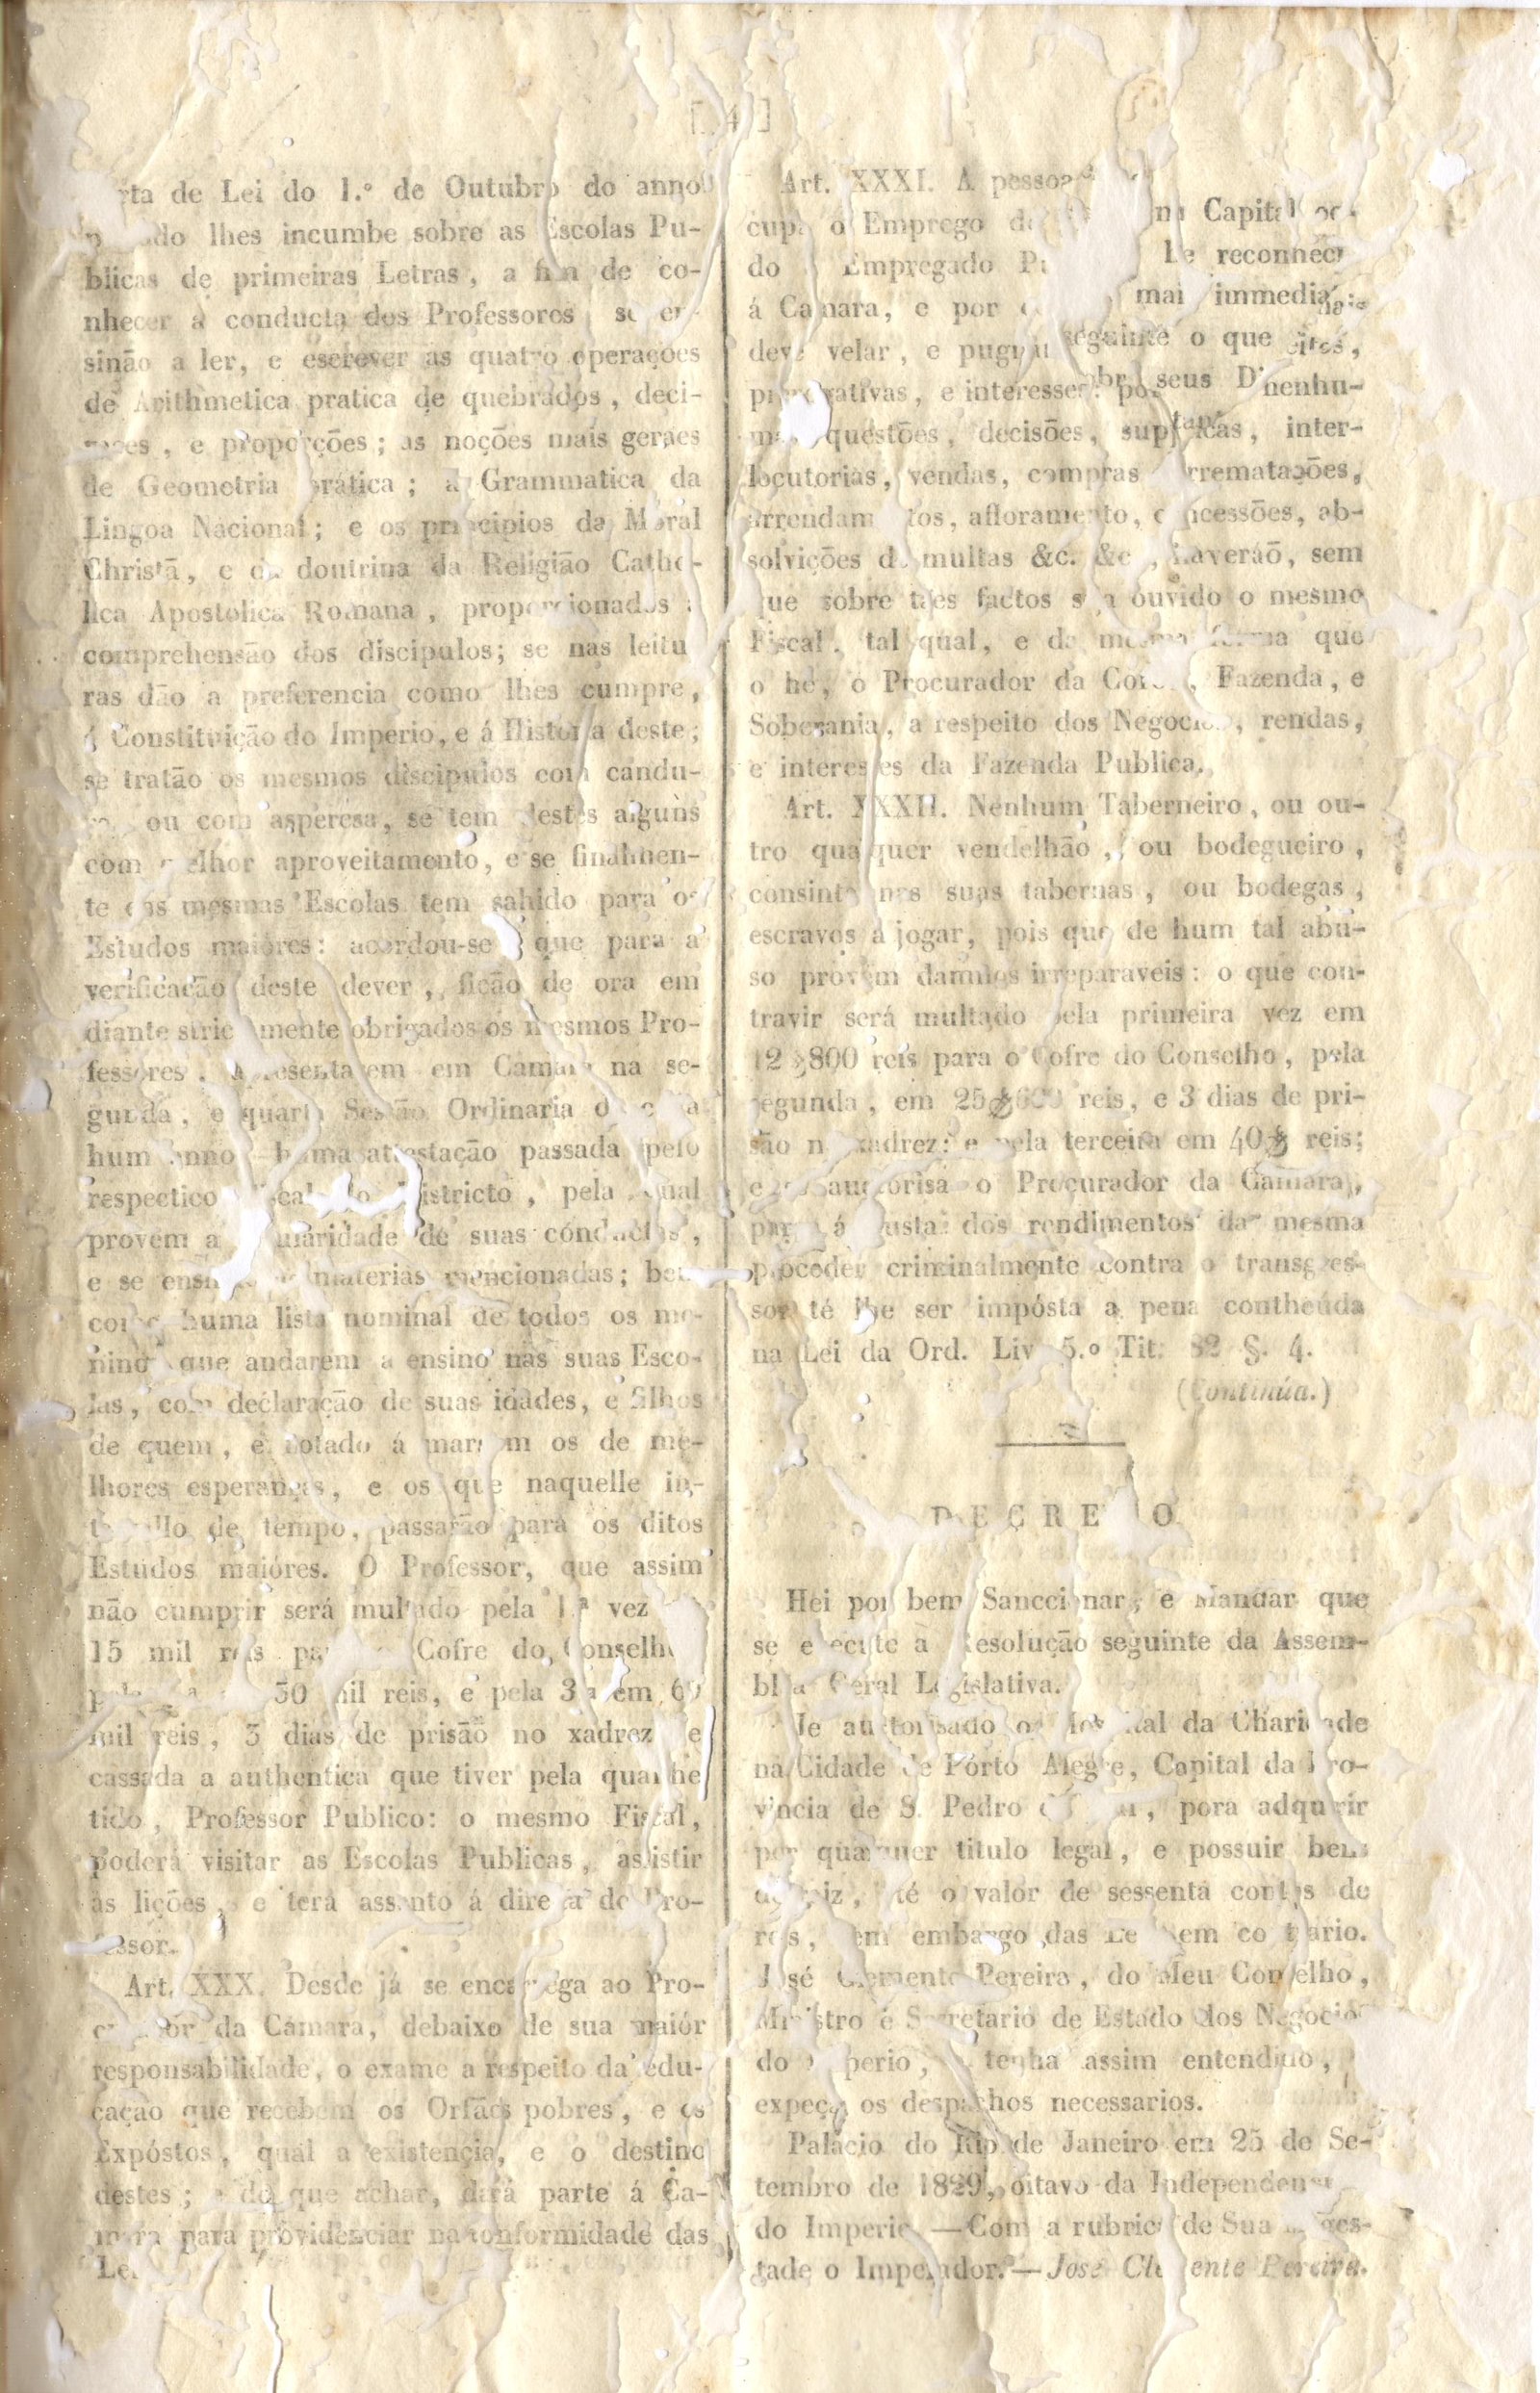 [ 4 ]
de Lei do 1.º de Outubro do anno
lhes incumbe sobre as Escolas Pu-
blicas de primeiras Letras, a fim de co-
nhecer a conducta dos Professores
sinão a ler, e escrever as quatro operações
de Arithmetica pratica de quebrados, deci-
e proporções; as noções mais geraes
de Geometria prática; a Grammatica da
Lingoa Nacional; e os principios da Moral
Christã, e da doutrina da Religião Catho-
lica Apostolica Romana, proporcionados
comprehensão dos discipulos; se nas leitu
ras dão a preferencia como lhes cumpre,
á Constituição do Imperio, e á Historia deste;
se tratão os mesmos discipulos com candu-
ou com asperesa, se tem destes alguns
com melhor aproveitamento, e se finalmen-
te das mesmas Escolas tem sahido para os
Estudos maióres: acordou-se que para a
verificação deste dever, ficão de ora em
diante strictamente obrigados os mesmos Pro-
fessores em Camara na se-
gunda, e quarta Sessão Ordinaria
hum anno huma attestação passada pelo
respectico Fiscal do Districto, pela qual
provem a de suas conductas,
e se materias mencionadas; bem
como huma lista nominal de todos os me-
ninos que andarem a ensino nas suas Esco-
las, com declaração de suas idades, e filhos
de quem, e notado á margem os de me-
lhores esperanças, e os que naquelle in-
de tempo, passarão para os ditos
Estudos maióres. O Professor, que assim
não cumprir será multado pela 1.ª vez
15 mil reis Cofre do Conselho
mil reis, e pela 3.ª em
mil reis, 3 dias de prisão no xadrez e
cassada a authentica que tiver pela qual he
tido, Professor Publico: o mesmo Fiscal,
poderá visitar as Escolas Publicas, assistir
ás lições, e terá assento á direita do Pro-
fessor.
Art. XXX. Desde já se encarrega ao Pro-
curador da Camara, debaixo de sua maiór
responsabilidade, o exame a respeito da edu-
cação que recebem os Orfãos pobres, e os
Expóstos, qual a existencia, e o destino
destes; e do que achar, dará parte á Ca-
mara para providenciar na conformidade das
Art. XXXI. A pessoa
cupa o Emprego na Capital
do Empregado reconhec
á Camara, e por mai immedia
deve velar, e pugnar seguinte o que
prerogativas, e interesses: seus nenhu-
mas questões, decisões, inter-
locutorias, vendas, compras arrematações,
arrendamentos, afloramento, concessões, ab-
solvições de multas &c. &c., haveráõ, sem
que sobre taes factos seja ouvido o mesmo
Fiscal, tal qual, e da mesma forma que
o he, o Procurador da Coroa, Fazenda, e
Soberania, a respeito dos Negocios, rendas,
e interesses da Fazenda Publica.
Art. XXXII. Nenhum Taberneiro, ou ou-
tro qualquer vendelhão, ou bodegueiro,
consinta nas suas tabernas, ou bodegas,
escravos a jogar, pois que de hum tal abu-
so provém damnos irreparaveis: o que con-
travir será multado pela primeira vez em
12$800 reis para o Cofre do Conselho, pela
segunda, em 25$600 reis, e 3 dias de pri-
são no xadrez: e pela terceira em 40$ reis;
e auctorisa o Procurador da Camara,
para á custa dos rendimentos da mesma
proceder criminalmente contra o transgres-
sor té lhe ser impósta a pena contheúda
na Lei da Ord. Liv. 5.º Tit. 82 §. 4.
(Continúa.)
DECRETO
Hei por bem Sanccionar, e Mandar que
se execute a Resolução seguinte da Assem-
bléa Geral Legislativa.
He auctorisado o Hospital da Charidade
na Cidade de Pórto Alegre, Capital da Pro-
vincia de S. Pedro do Sul, pora adquirir
por qualquer titulo legal, e possuir bens
de raiz, té o valor de sessenta contos de
reis, sem embargo das Leis em contrario.
José Clemente Pereira, do Meu Conselho,
Ministro e Secretario de Estado dos Negocios
do Imperio, tenha assim entendido,
expeça os despachos necessarios.
Palacio do Rio de Janeiro em 25 de Se-
tembro de 1829, oitavo da Independencia
do Imperio — Com a rubrica de Sua Mages-
tade o Imperador. — José Clemente Pereira.